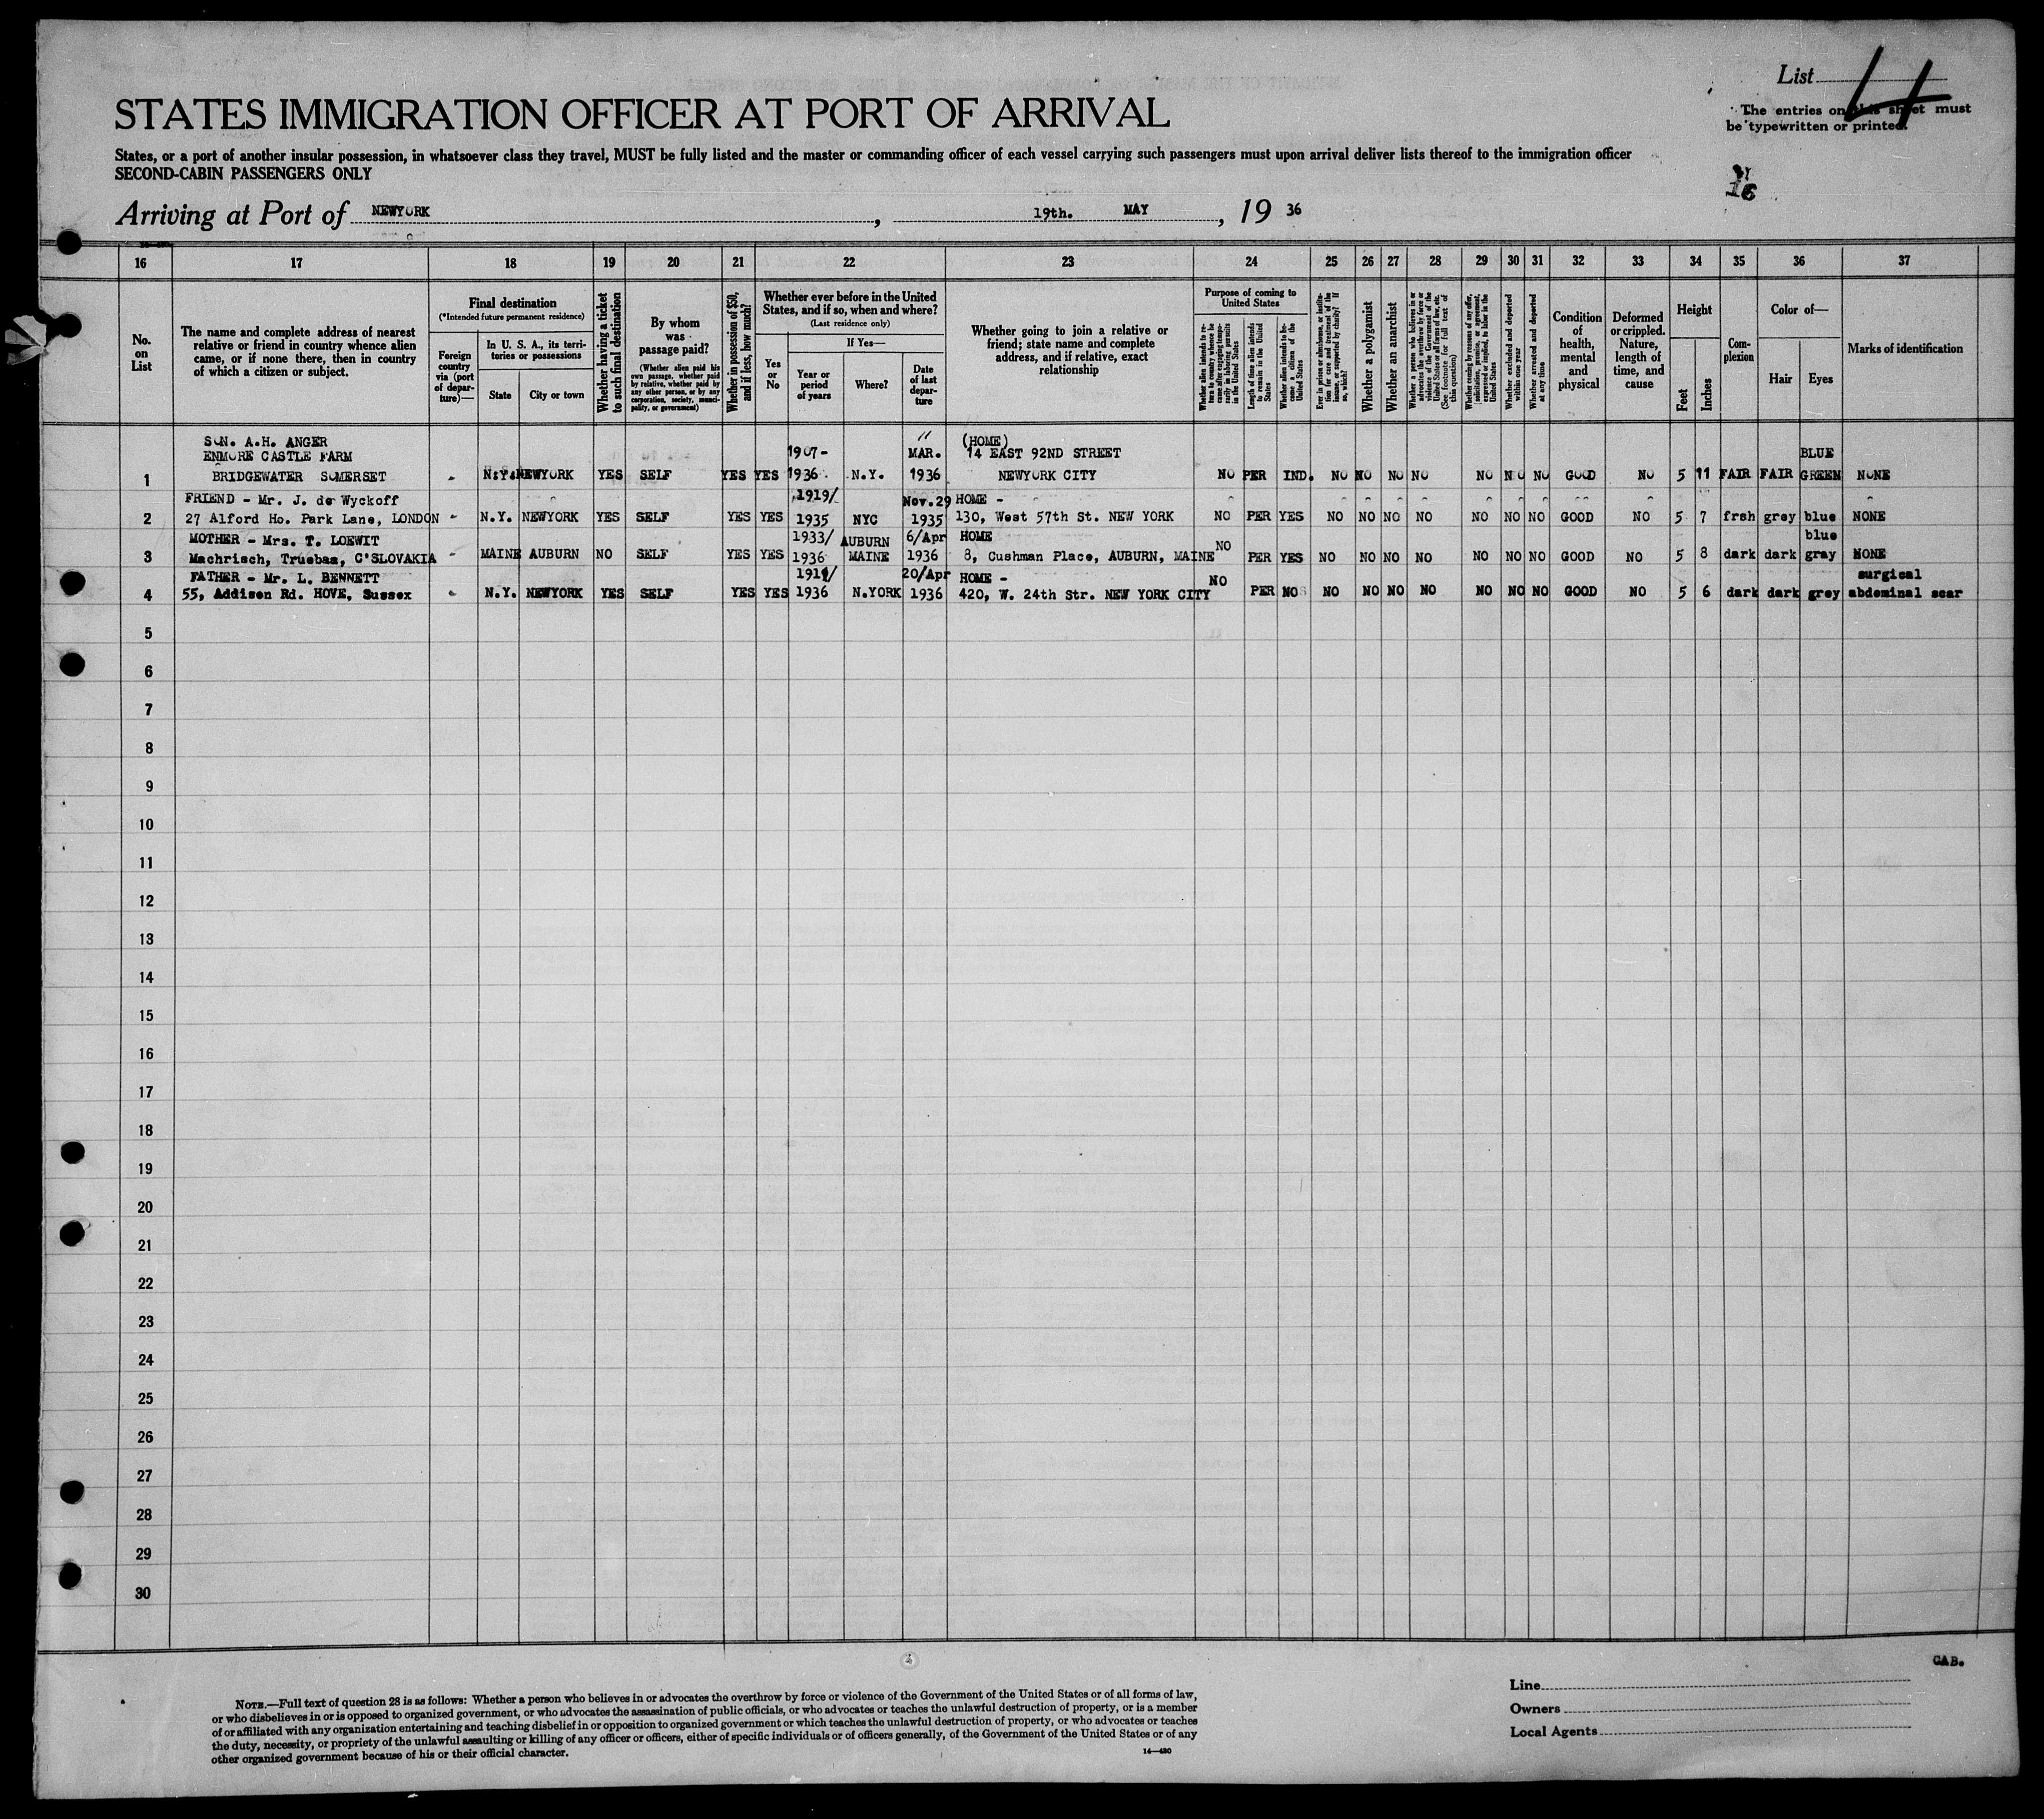 List 4
STATES IMMIGRATION OFFICER AT PORT OF ARRIVAL
The entries on this sheet must
be typewritten or printed.
States, or a port of another insular possession, in whatsoever class they travel, MUST be fully listed and the master or commanding officer of each vessel carrying such passengers must upon arrival deliver lists thereof to the immigration officer
SECOND-CABIN PASSENGERS ONLY
16
Arriving at Port of NEWYORK, 19th. MAY, 19 36
16 17 18 19 20 21 22 23 24 25 26 27 28 29 30 31 32 33 34 35 36 37
No. on List
The name and complete address of nearest
relative or friend in country whence alien
came, or if none there, then in country
of which a citizen or subject.
Final destination
(*Intended future permanent residence)
Foreign country via (port of departure)—
In U. S. A., its territories or possessions
State
City or town
Whether having a ticket to such final destination
By whom was passage paid?
(Whether alien paid his own passage, whether paid by relative, whether paid by any other person, or by any corporation, society, municipality, or government)
Whether in possession of $50, and if less, how much?
Whether ever before in the United States, and if so, when and where?
(Last residence only)
Yes or No
If Yes—
Year or period of years
Where?
Date of last departure
Whether going to join a relative or
friend; state name and complete
address, and if relative, exact
relationship
Purpose of coming to United States
Whether alien intends to return to country whence he came after engaging temporarily in laboring pursuits in the United States
Length of time alien intends to remain in the United States
Whether alien intends to become a citizen of the United States
Ever in prison or almshouse, or institution for care and treatment of the insane, or supported by charity? If so, which?
Whether a polygamist
Whether an anarchist
Whether a person who believes in or advocates the overthrow by force or violence of the Government of the United States or all forms of law, etc. (See footnote for full text of this question)
Whether coming by reasons of any offer, solicitation, promise, or agreement, expressed or implied, to labor in the United States
Whether excluded and deported within one year
Whether arrested and deported at any time
Condition of health, mental and physical
Deformed or crippled. Nature, length of time, and cause
Height
Feet
Inches
Complexion
Color of—
Hair
Eyes
Marks of identification
SON. A.H. ANGER 11 (HOME)
ENMORE CASTLE FARM 1907- MAR. 14 EAST 92ND STREET BLUE
1 BRIDGEWATER SOMERSET - N.Y. NEWYORK YES SELF YES YES 1936 N.Y. 1936 NEWYORK CITY NO PER IND. NO NO NO NO NO NO NO GOOD NO 5 11 FAIR FAIR GREEN NONE
FRIEND - Mr. J. de Wyckoff 1919/ Nov.29 HOME -
2 27 Alford Ho. Park Lane, LONDON - N.Y. NEWYORK YES SELF YES YES 1935 NYC 1935 130, West 57th St. NEW YORK NO PER YES NO NO NO NO NO NO NO GOOD NO 5 7 frsh grey blue NONE
MOTHER - Mrs. T. LOEWIT 1933/ AUBURN 6/Apr HOME blue
3 Machrisch, Truebaa, C'SLOVAKIA - MAINE AUBURN NO SELF YES YES 1936 MAINE 1936 8, Cushman Place, AUBURN, MAINE NO PER YES NO NO NO NO NO NO NO GOOD NO 5 8 dark dark gray NONE
FATHER - Mr. L. BENNETT 1911/ 20/Apr HOME - surgical
4 55, Addison Rd. HOVE, Sussex - N.Y. NEWYORK YES SELF YES YES 1936 N.YORK 1936 420, W. 24th Str. NEW YORK CITY NO PER NO NO NO NO NO NO NO NO GOOD NO 5 6 dark dark grey abdominal scar
5
6
7
8
9
10
11
12
13
14
15
16
17
18
19
20
21
22
23
24
25
26
27
28
29
30
CAB.
NOTE.—Full text of question 28 is as follows: Whether a person who believes in or advocates the overthrow by force or violence of the Government of the United States or of all forms of law,
or who disbelieves in or is opposed to organized government, or who advocates the assassination of public officials, or who advocates or teaches the unlawful destruction of property, or is a member
of or affiliated with any organization entertaining and teaching disbelief in or opposition to organized government or which teaches the unlawful destruction of property, or who advocates or teaches
the duty, necessity, or propriety of the unlawful assaulting or killing of any officer or officers, either of specific individuals or of officers generally, of the Government of the United States or of any
other organized government because of his or their official character.
14—430
Line
Owners
Local Agents